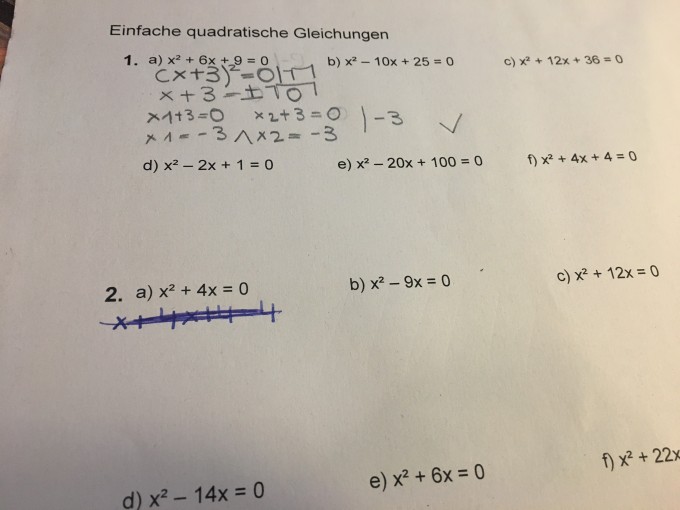 Einfache quadratische Gleichungen
1. a) x² + 6x + 9 = 0 b) x² – 10x + 25 = 0 c) x² + 12x + 36 = 0
(x+3)² = 0 | √
x + 3 = ±√0
x1+3=0 x2+3=0 | -3 ✓
x1 = -3 ∧ x2 = -3
d) x² – 2x + 1 = 0 e) x² – 20x + 100 = 0 f) x² + 4x + 4 = 0
2. a) x² + 4x = 0 b) x² – 9x = 0 c) x² + 12x = 0
d) x² – 14x = 0 e) x² + 6x = 0 f) x² + 22x